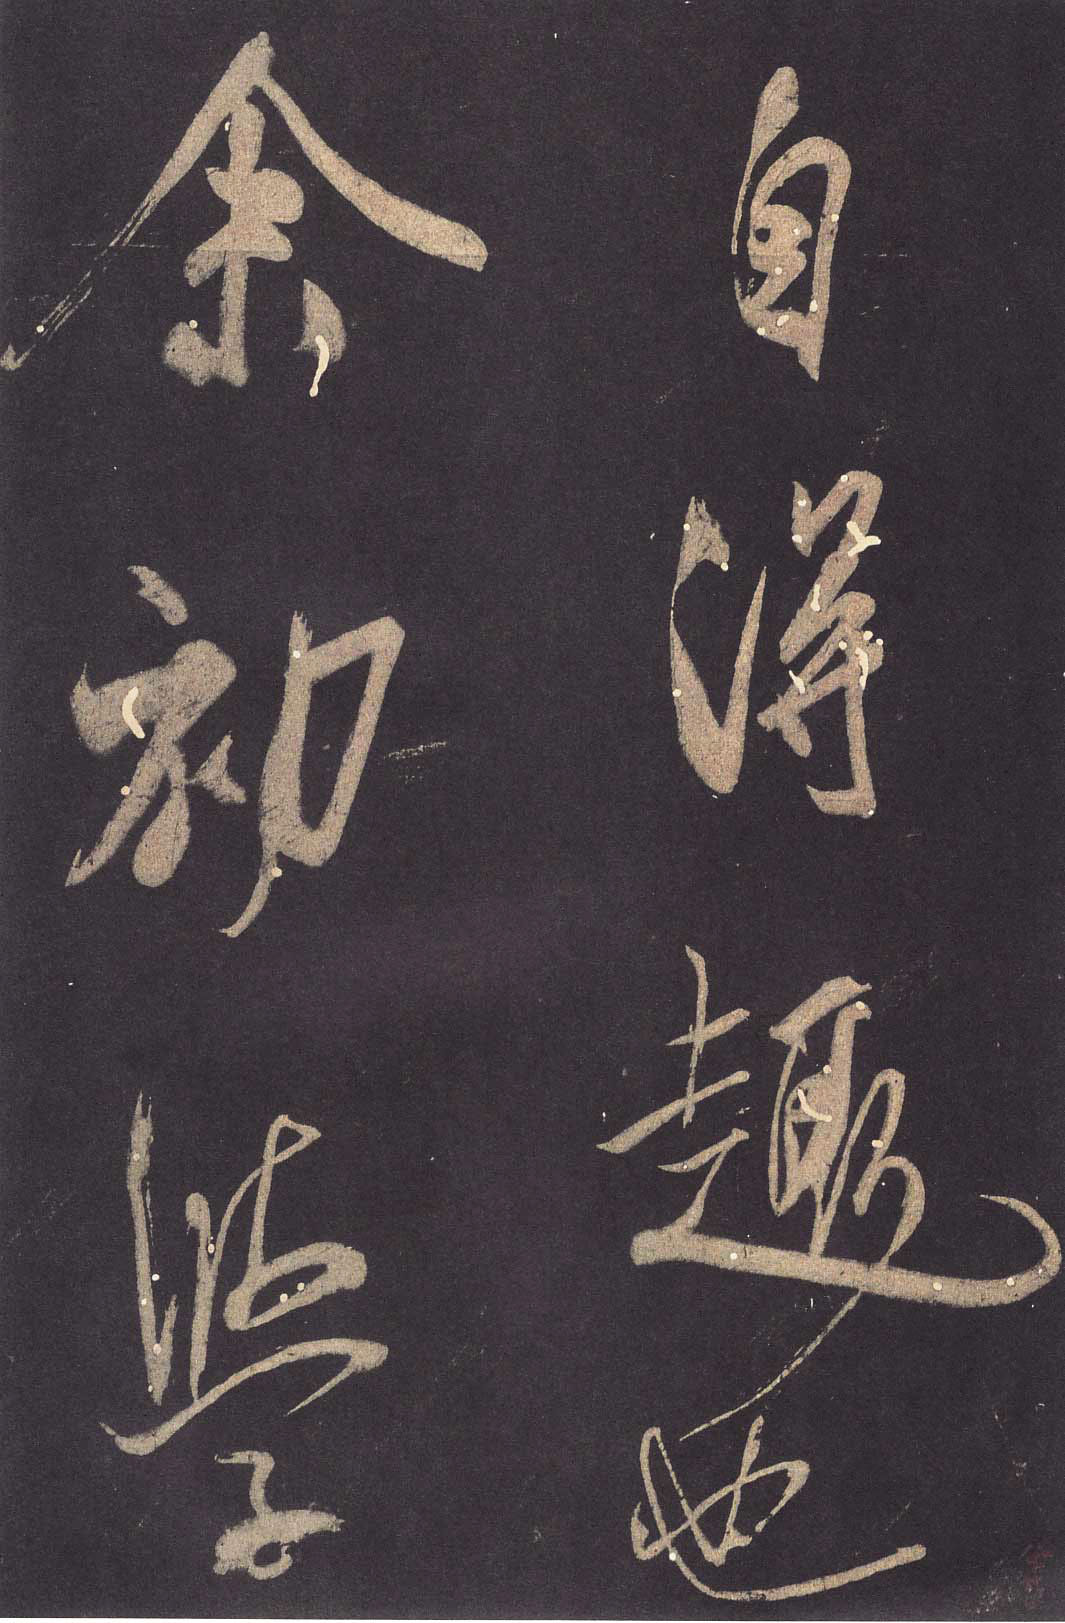 自得趣也
余初學